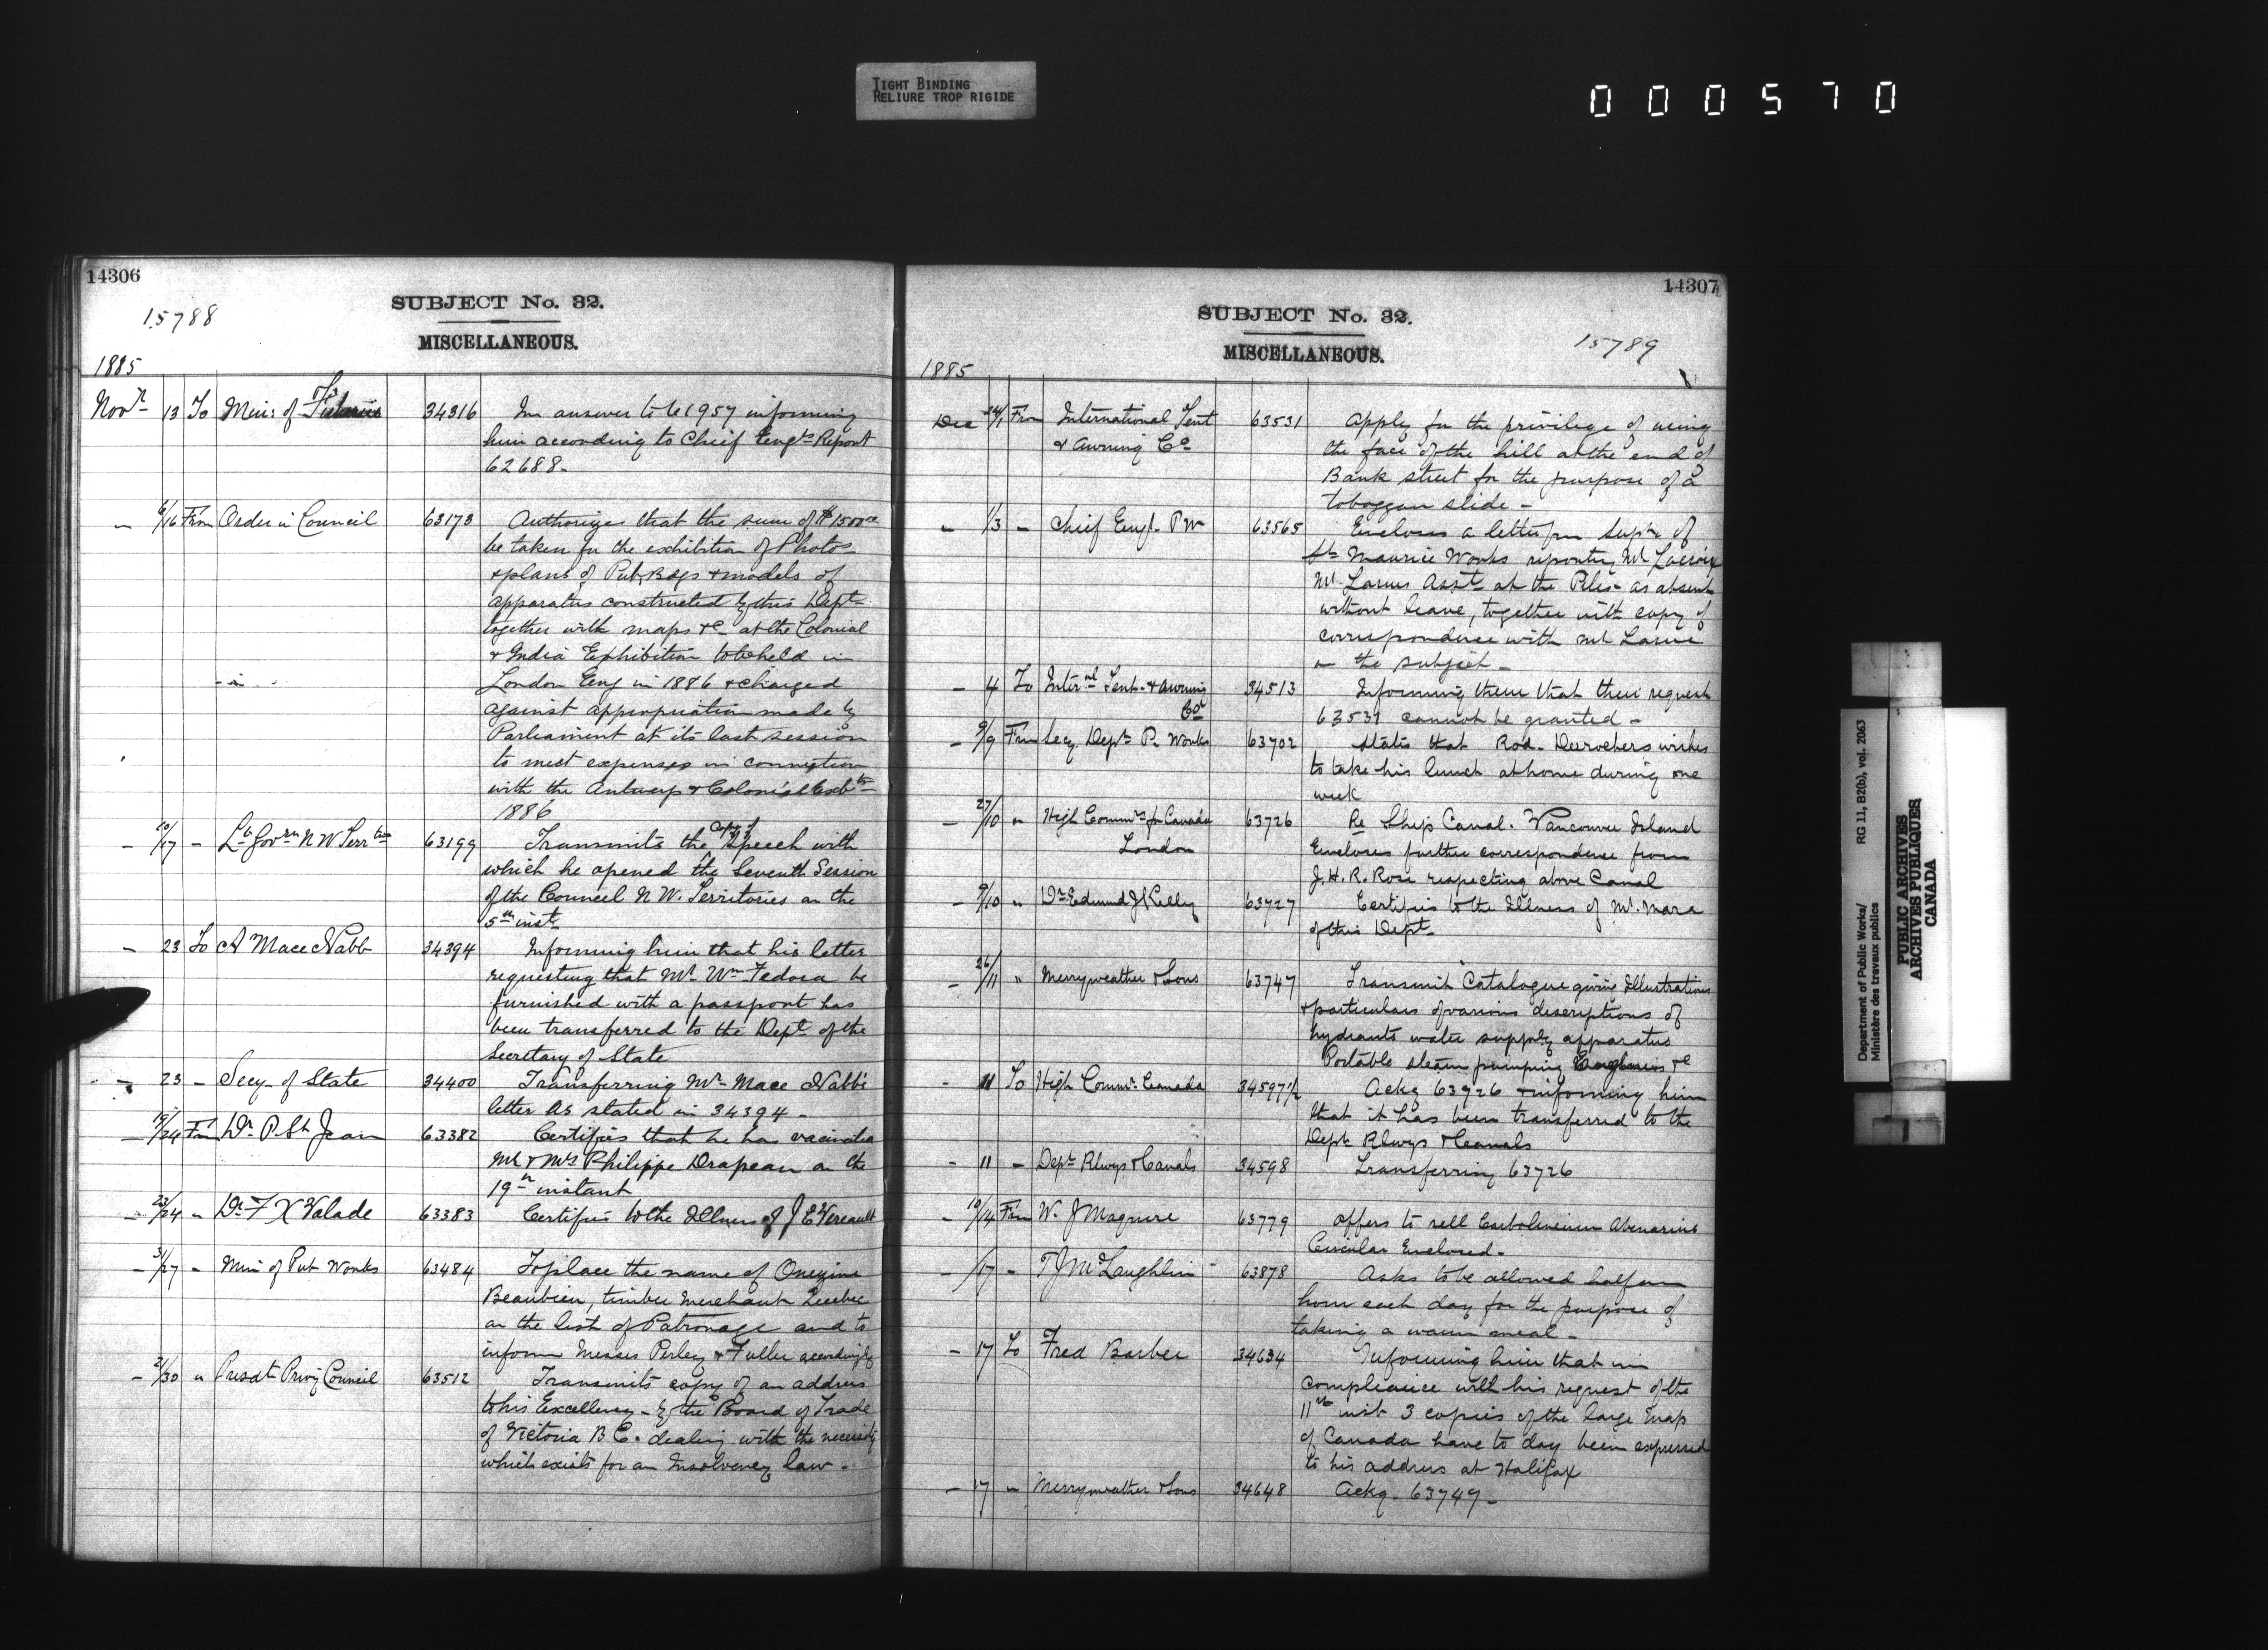 TIGHT BINDING
RELIURE TROP RIGIDE
000570
14306
15788
SUBJECT No. 32.
MISCELLANEOUS.
1885
Novr 13 To Min: of Fisheries 34316 In answer to 61957 informing
him according to Chief Engrs Report
62688-
- 6/16 From Order in Council 63173 Authorizes that the sum of $1500.00
be taken for the exhibition of Photos
+ plans of Pub Bdgs + models of
apparatus constructed by this Dept
together with maps &c at the Colonial
+ India Exhibition to be held in
London Eng in 1886 + charged
against appropriation made by
Parliament at its last session
to meet expenses in connection
with the Antwerp + Colonial Exbtn
1886
- 10/17 - Lt Govrn N W Terrtrs 63199 Transmits the copy of speech with
which he opened the Seventh Session
of the Council N W. Territories on the
5th inst
- 23 To A Mace Nabb 34394 Informing him that his letter
requesting that Mr Wm Fedora be
furnished with a passport has
been transferred to the Dept of the
Secretary of State
- 23 - Secy of State 34400 Transferring Mr Mace Nabb's
letter as stated in 34394-
- 19/24 From Dr P. St Jean 63382 Certifies that he has
Mr + Mrs Philippe Drapeau on the
19th instant
- 23/24 " Dr F X Valade 63383 Certifies to the illness of J E Vereault
- 3/27 " Min of Pub Works 63484 To place the name of Onezime
Beaubien, timber merchant Quebec
on the list of Patronage and to
inform Messrs Perley + Fuller accordingly
- 21/30 " Presdt Privy Council 63512 Transmits copy of an address
to his Excellency - by the Board of Trade
of Victoria B C. dealing with the necessity
which exists for an Insolvency law-
14307
SUBJECT No. 32.
MISCELLANEOUS.
15789
1885
Dec 24/1 From International Tent 63531 Apply for the privilege of using
& Awning Co the face of the hill at the end of
Bank street for the purpose of a
toboggan slide-
- 1/3 - Chief Engr P W 63565 Encloses a letter from Supt of
St Maurice Works reporting Mr Lacroix
Mr. Larues Asst at the Piles as absent
without leave, together with copy of
correspondence with Mr Larue
on the subject-
- 4 To Interal Tent + awning 34513 Informing them that their request
Co 63531 cannot be granted-
- 9/9 From Secy Dept P. Works 63702 States that Rod. Durochers wishes
to take his lunch at home during one
week
- 27/10 " High Commr for Canada 63726 Re Ship Canal. Vancouver Island
London Encloses further correspondence from
J. H. R. Rose respecting above Canal
- 9/10 " Dr Edmund J Kelly 63727 Certifies to the illness of Mr. Mara
of this Dept
- 26/11 " Merryweather & Sons 63747 Transmit Catalogue giving Illustrations
+ particulars of various descriptions of
hydrants water supply apparatus
Portable steam pumping Engines &c
- 11 To High Commr Canada 34597 1/2 Ackg 63726 + informing him
that it has been transferred to the
Dept Rlwys + Canals
- 11 - Dept Rlwys + Canals 34598 Transferring 63726
- 10/14 From W. J Maguire 63779 Offers to sell Carbolineum Avenarius
Circular Enclosed-
- /17 - T J McLaughlin 63878 Asks to be allowed half an
hour each day for the purpose of
taking a warm meal-
- 17 To Fred Barber 34634 Informing him that in
compliance with his request of the
11th inst 3 copies of the large map
of Canada have to day been expressed
to his address at Halifax
- 17 " Merryweather & Sons 34648 Ackg. 63749-
Department of Public Works/ RG 11, B2(b), vol. 2063
Ministère des travaux publics
PUBLIC ARCHIVES
ARCHIVES PUBLIQUES
CANADA